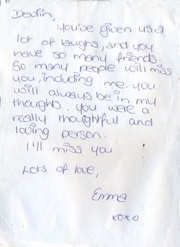 you've given us a
lot of laughs, and you
have so many friends.
So many people will miss
you, including me. you
will always be in my
thoughts. you were a
really thoughtful and
loving person.
I'll miss you
Lots of love,
Emma
xoxo